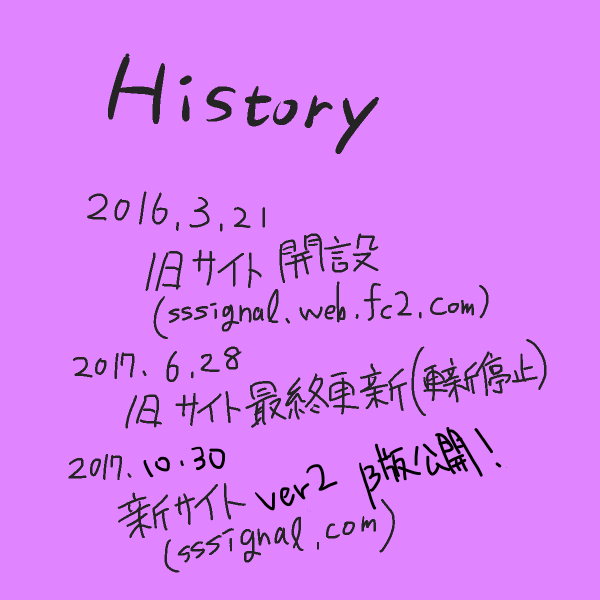 History
2016.3.21
旧サイト開設
(sssignal.web.fc2.com)
2017.6.28
旧サイト最終更新(更新停止)
2017.10.30
新サイトver2 β版公開!
(sssignal.com)